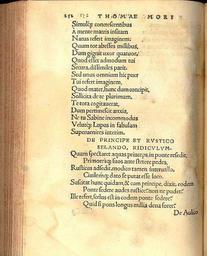 THOMAE MORI
Simulq́ue concrescentibus
A mente matris insitam
Nanus refert imaginem:
Quum tot abesses milibus,
Dum gignit uxor quatuor,
Quod esset admodum tui
Secura, dissimiles parit.
Sed unus omnium hic puer
Tui refert imaginem,
Quod mater, hunc dum concipit,
Sollicita de te plurimum,
Te tota cogitauerat,
Dum pertimescit anxia,
Ne tu Sabine incommodus
Velutq́ue Lupus in fabulam
Superuenires interim.
DE PRINCIPE ET RVSTICO
SELANDO, RIDICVLVM.
Quum spectaret aquas princeps in ponte resedit,
Primoresq́ue suos ante stetere pedes.
Rusticus adsedit, modico tamen interuallo,
Ciuilemq́ue
Suscitat hunc quidam, & cum principe, dixit, eodem
Ponte sedere audes rustice? non ne pudet?
Ille refert, scelus est in eodem ponte sedere?
Quid si pons longus milia dena foret?
De Aulico